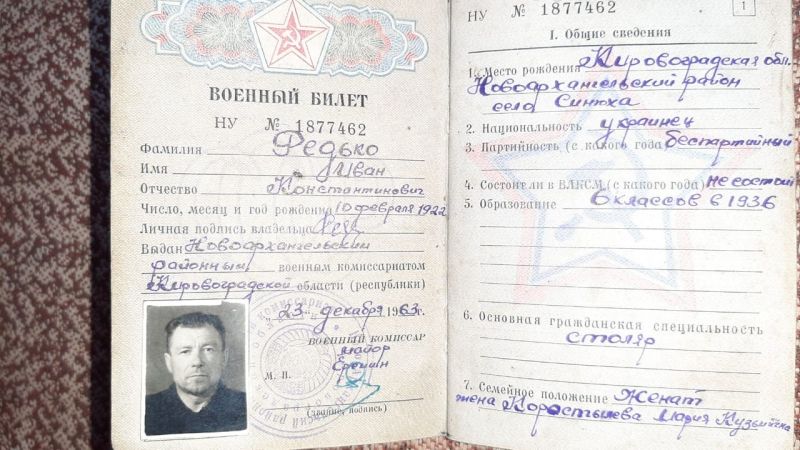 ВОЕННЫЙ БИЛЕТ
НУ № 1877462
Фамилия Редько
Имя Иван
Отчество Константинович
Число, месяц и год рождения 10 февраля 1922
Личная подпись владельца
Выдан Новоархангельский
районным военным комиссариатом
Кировоградской области (республики)
23 декабря 1963 г.
ВОЕННЫЙ КОМИССАР
майор
М. П.
(звание, подпись)
НУ № 1877462
1
I. Общие сведения
1. Место рождения Кировоградская обл.
Новоархангельский район
село Синюха
2. Национальность украинец
3. Партийность (с какого года) беспартийный
4. Состоит ли в ВЛКСМ (с какого года) не состоит
5. Образование 6 классов в 1936
6. Основная гражданская специальность
столяр
7. Семейное положение Женат
жена Коростылева Мария